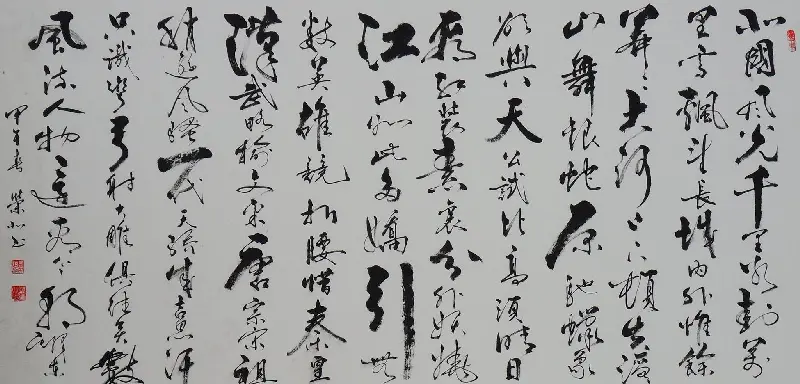 北國風光千里冰封萬
里雪飄望長城內外惟餘
莽々大河上下頓失滔々
山舞銀蛇原馳蠟象
欲與天公試比高須晴日
看紅裝素裹分外妖嬈
江山如此多嬌引無
數英雄競折腰惜秦皇
漢武略輸文采唐宗宋祖
稍遜風騷一代天驕成吉思汗
只識彎弓射大雕俱往矣數
風流人物還看今朝
甲午春